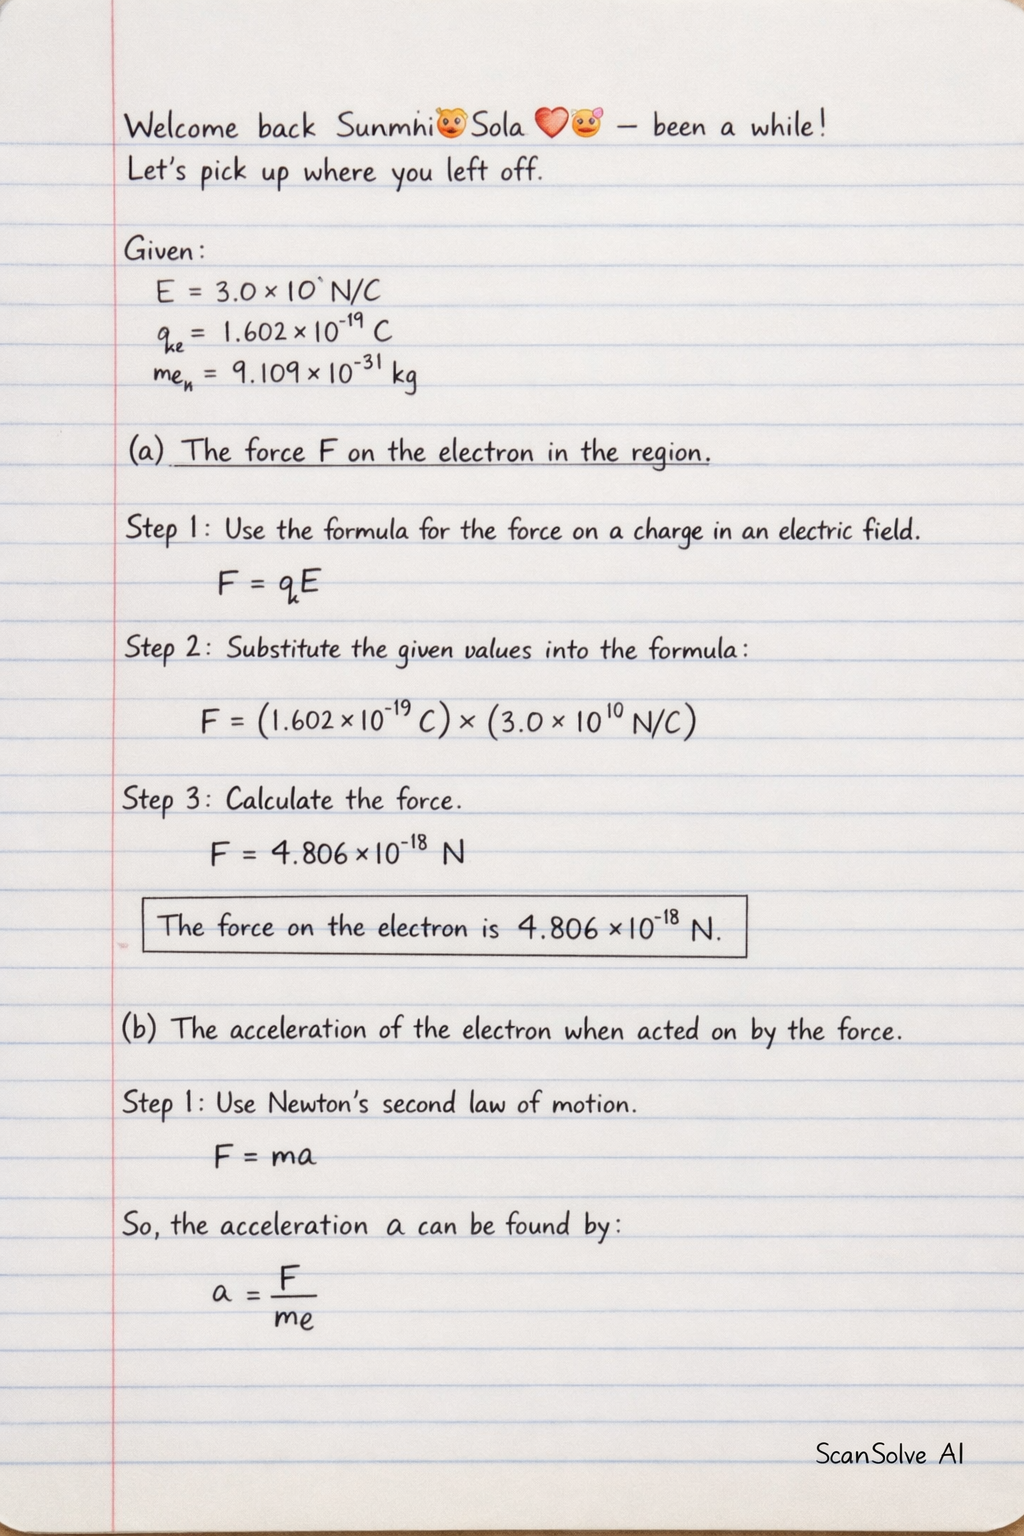 Welcome back Sunmhi Sola ❤️ – been a while!
Let's pick up where you left off.
Given:
E = 3.0 × 10` N/C
qke = 1.602 × 10⁻¹⁹ C
men = 9.109 × 10⁻³¹ kg
(a) The force F on the electron in the region.
Step 1: Use the formula for the force on a charge in an electric field.
F = qE
Step 2: Substitute the given values into the formula:
F = (1.602 × 10⁻¹⁹ C) × (3.0 × 10¹⁰ N/C)
Step 3: Calculate the force.
F = 4.806 × 10⁻¹⁸ N
The force on the electron is 4.806 × 10⁻¹⁸ N.
(b) The acceleration of the electron when acted on by the force.
Step 1: Use Newton's second law of motion.
F = ma
So, the acceleration a can be found by:
a = F / me
ScanSolve AI